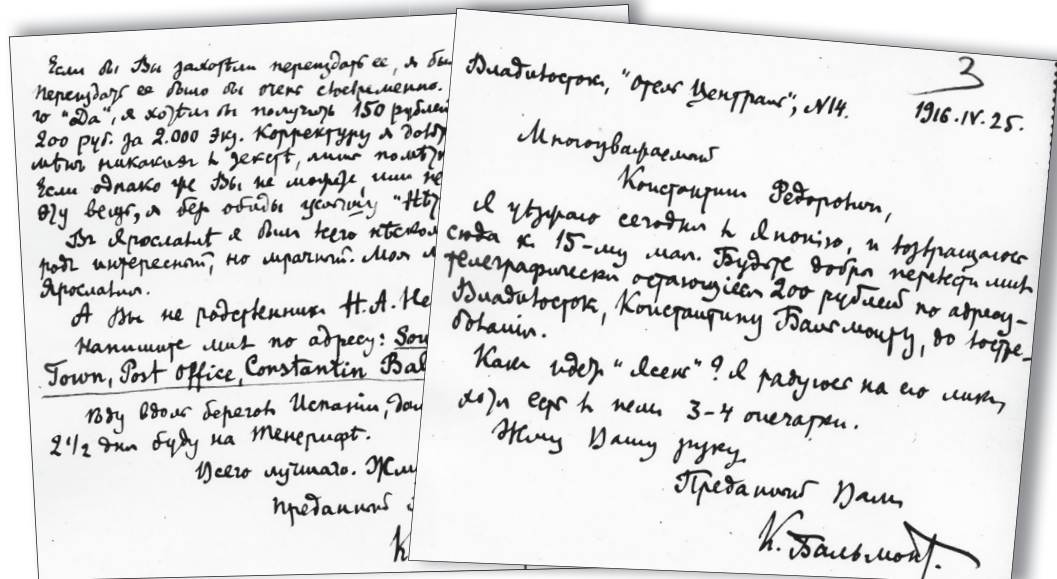 Если бы Вы захотѣли переиздать ее, я бы
Переиздать ее было бы очень своевременно.
го "Да", я хотѣлъ бы получить 150 рублей
200 руб. за 2.000 экз. Корректуру я довѣр
мѣнъ никакихъ в текстѣ, лишь помѣт
Если однако же Вы не можете, или не
эту вещь, я без обиды услышу "Нѣт
Въ Ярославлѣ я былъ всего нѣскол
родъ интересный, но мрачный. Моя м
Ярославля.
А Вы не родственникъ Н.А. Не
Напишите мнѣ по адресу: Sou
Town, Post Office, Constantin Bal
Ѣду вдоль береговъ Испаніи,
2 1/2 дня буду на Тенерифѣ.
Всего лучшаго. Жму
Преданный
К.
3
Владивосток, "Отель Централь", N14.
1916.IV.25.
Многоуважаемый
Константинъ Федорович,
Я уѣзжаю сегодня в Японію, и возвращаюсь
сюда к 15-му мая. Будьте добры перевести мнѣ
телеграфически остающіеся 200 рублей по адресу-
Владивосток, Константину Бальмонту, до востре-
бованія.
Какъ идетъ "Ясень"? Я радуюсь на его ликъ,
хотя есть в немъ 3-4 опечатки.
Жму Вашу руку.
Преданный Вамъ
К. Бальмонт.